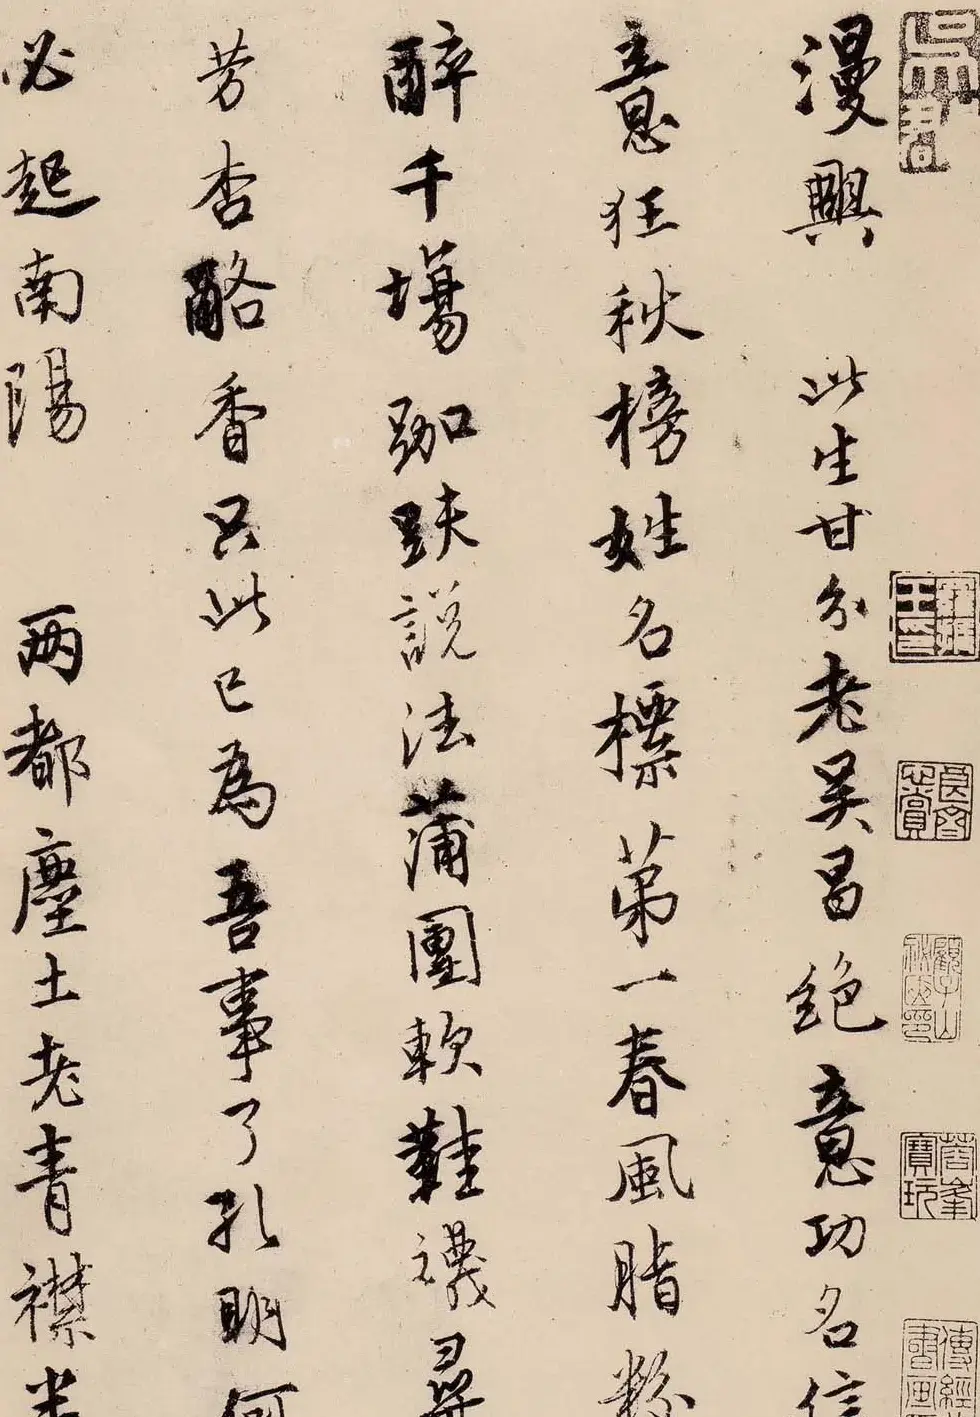 漫興 此生甘分老吳昌絕意功名信
意狂秋榜姓名標苐一春風脂粉
醉千場跏趺說法蒲團軟鞋襪尋
芳杏酪香只此已為吾事了孔明何
必起南陽 两都塵土老青襟半